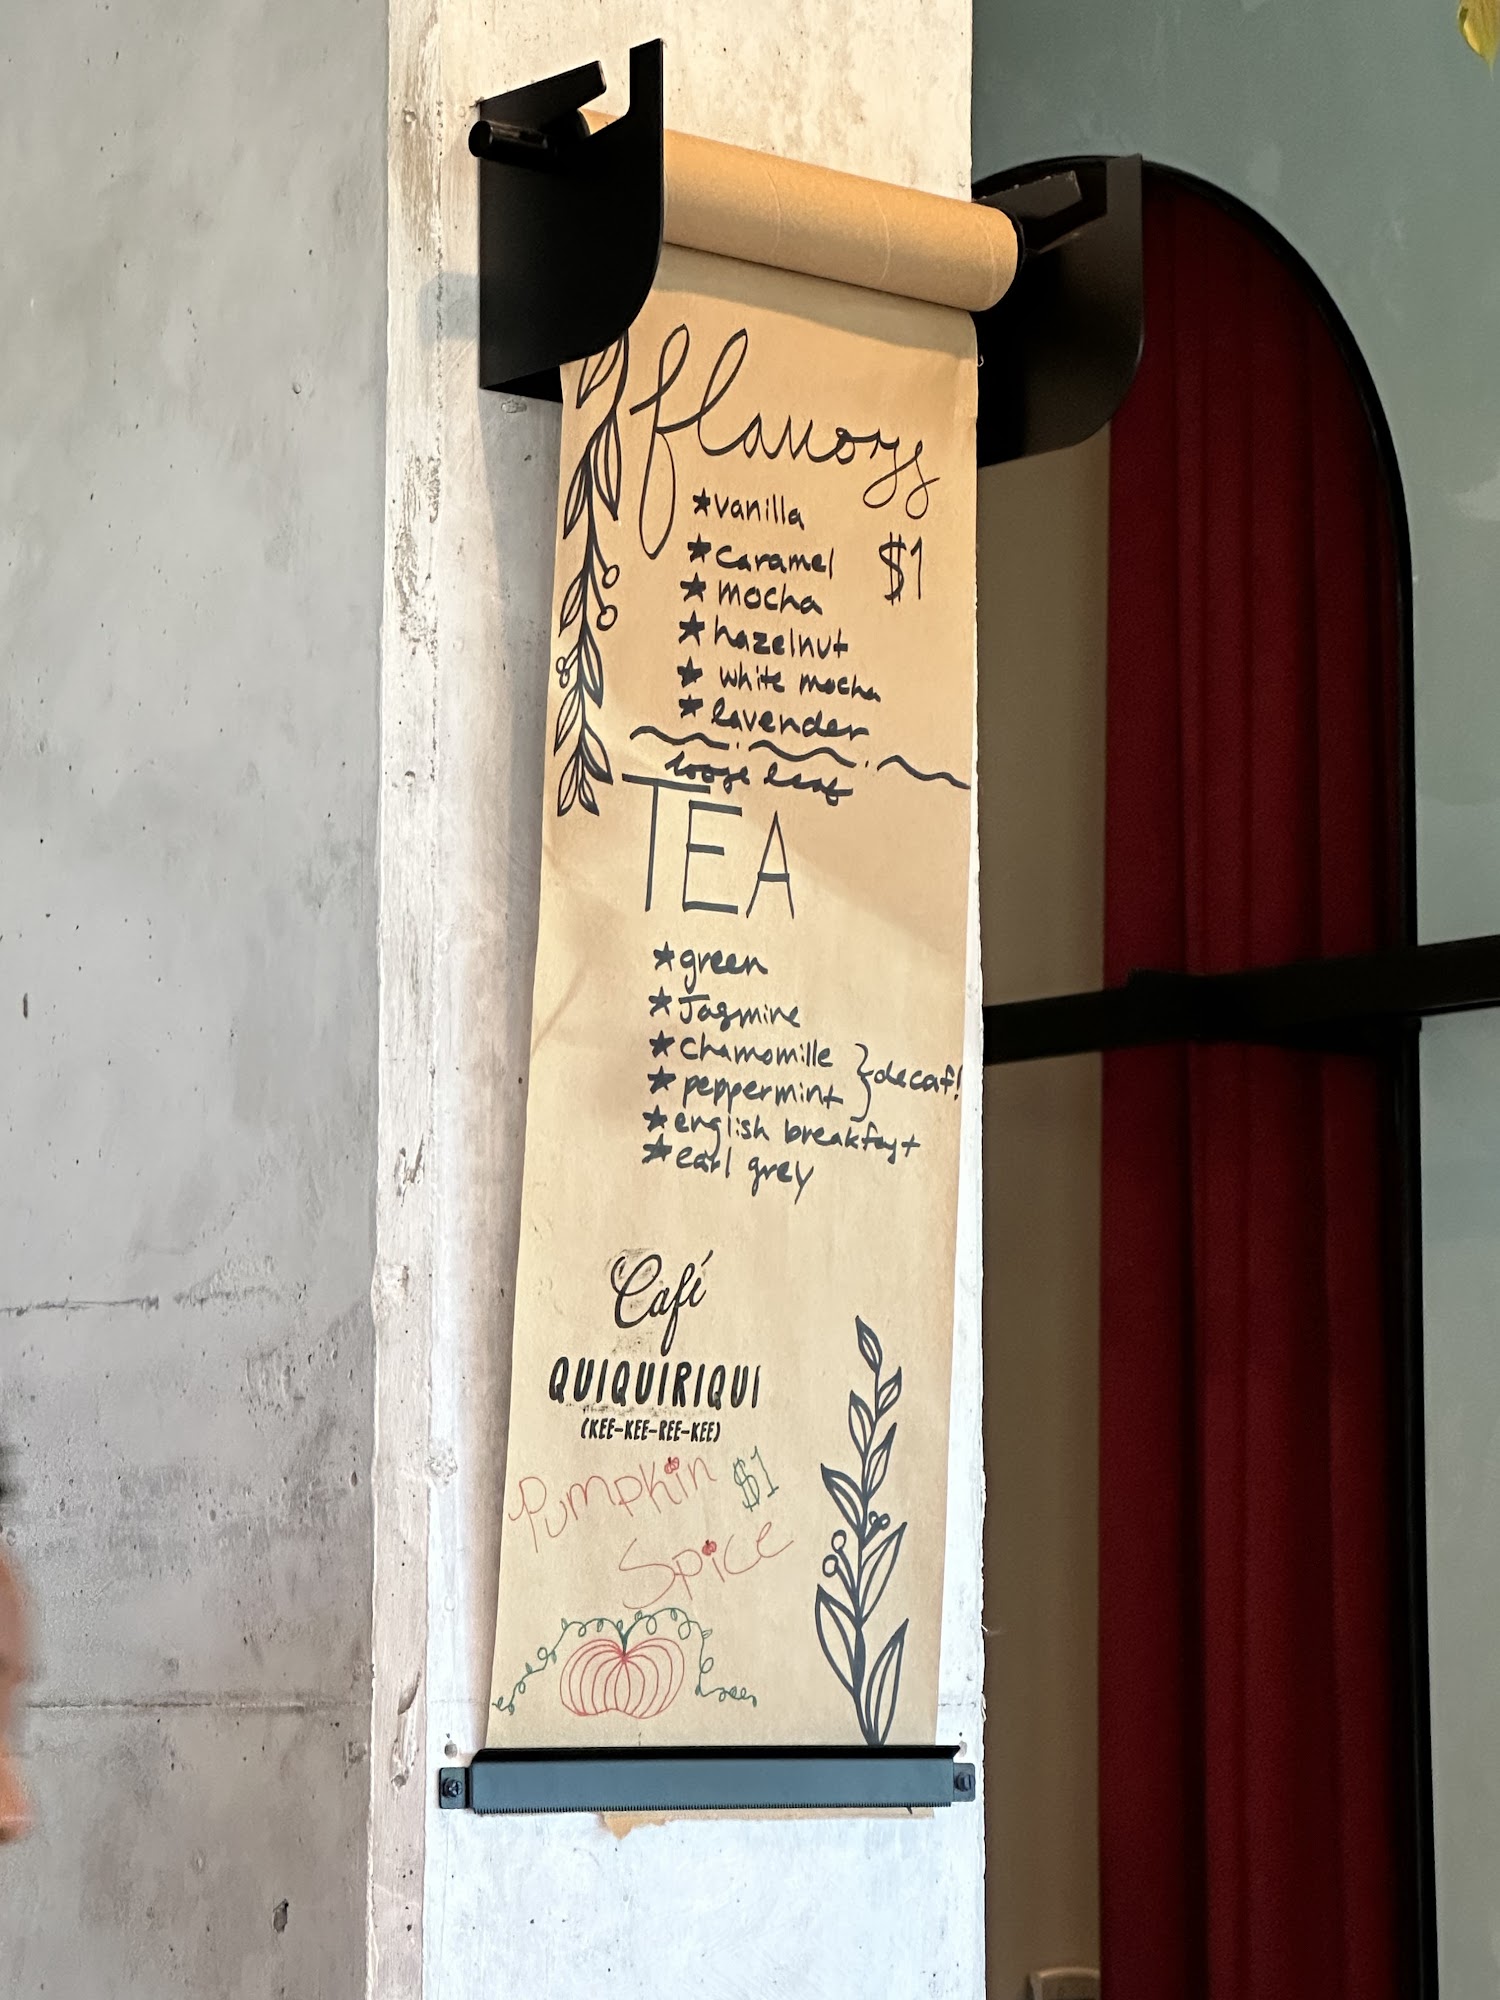 flavors
★vanilla
★caramel $1
★mocha
★hazelnut
★white mocha
★lavender
loose leaf
TEA
★green
★Jasmine
★chamomille
★peppermint } decaf!
★english breakfast
★earl grey
Café
QUIQUIRIQUI
(KEE-KEE-REE-KEE)
Pumpkin $1
Spice